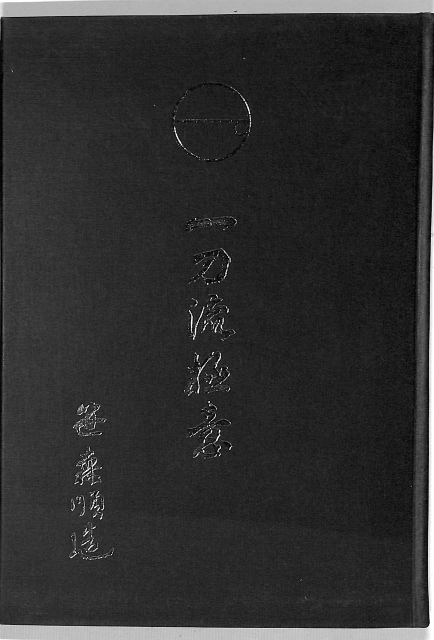 一刀流極意
笹森順造